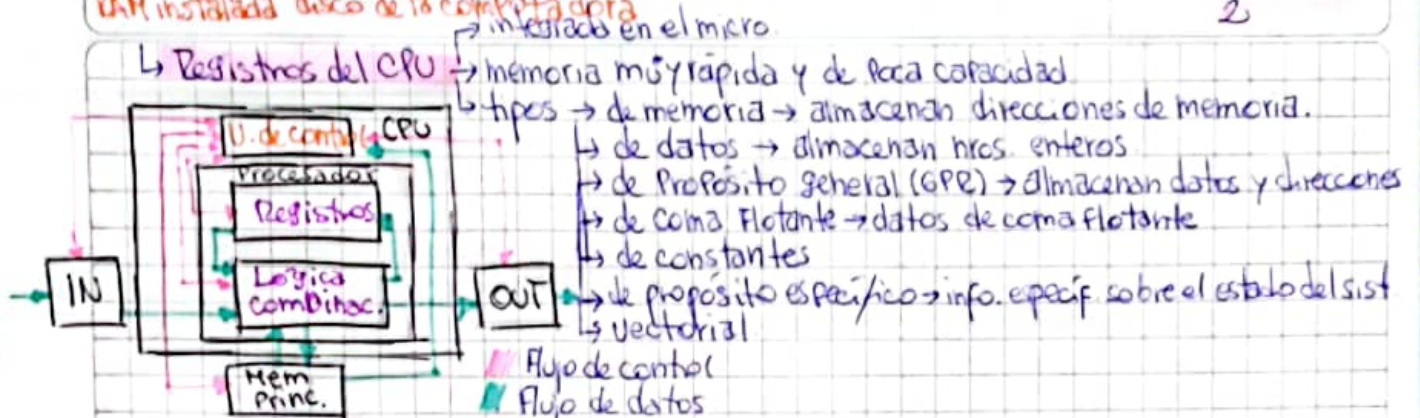 RAM instalada disco de la computadora
2
→ integrado en el micro.
↳ Registros del CPU → memoria muy rápida y de Poca capacidad
↳ tipos → de memoria → almacenan direcciones de memoria.
↳ de datos → almacenan nros. enteros
↳ de Proposito general (GPR) → almacenan datos y direcciones
↳ de coma Flotante → datos de coma flotante
↳ de constantes
↳ de proposito específico → info. especif. sobre el estado del sist
↳ vectorial
U. de control
CPU
Procesador
Registros
Logica
combinac.
IN
OUT
Mem
Princ.
Flujo de control
Flujo de datos